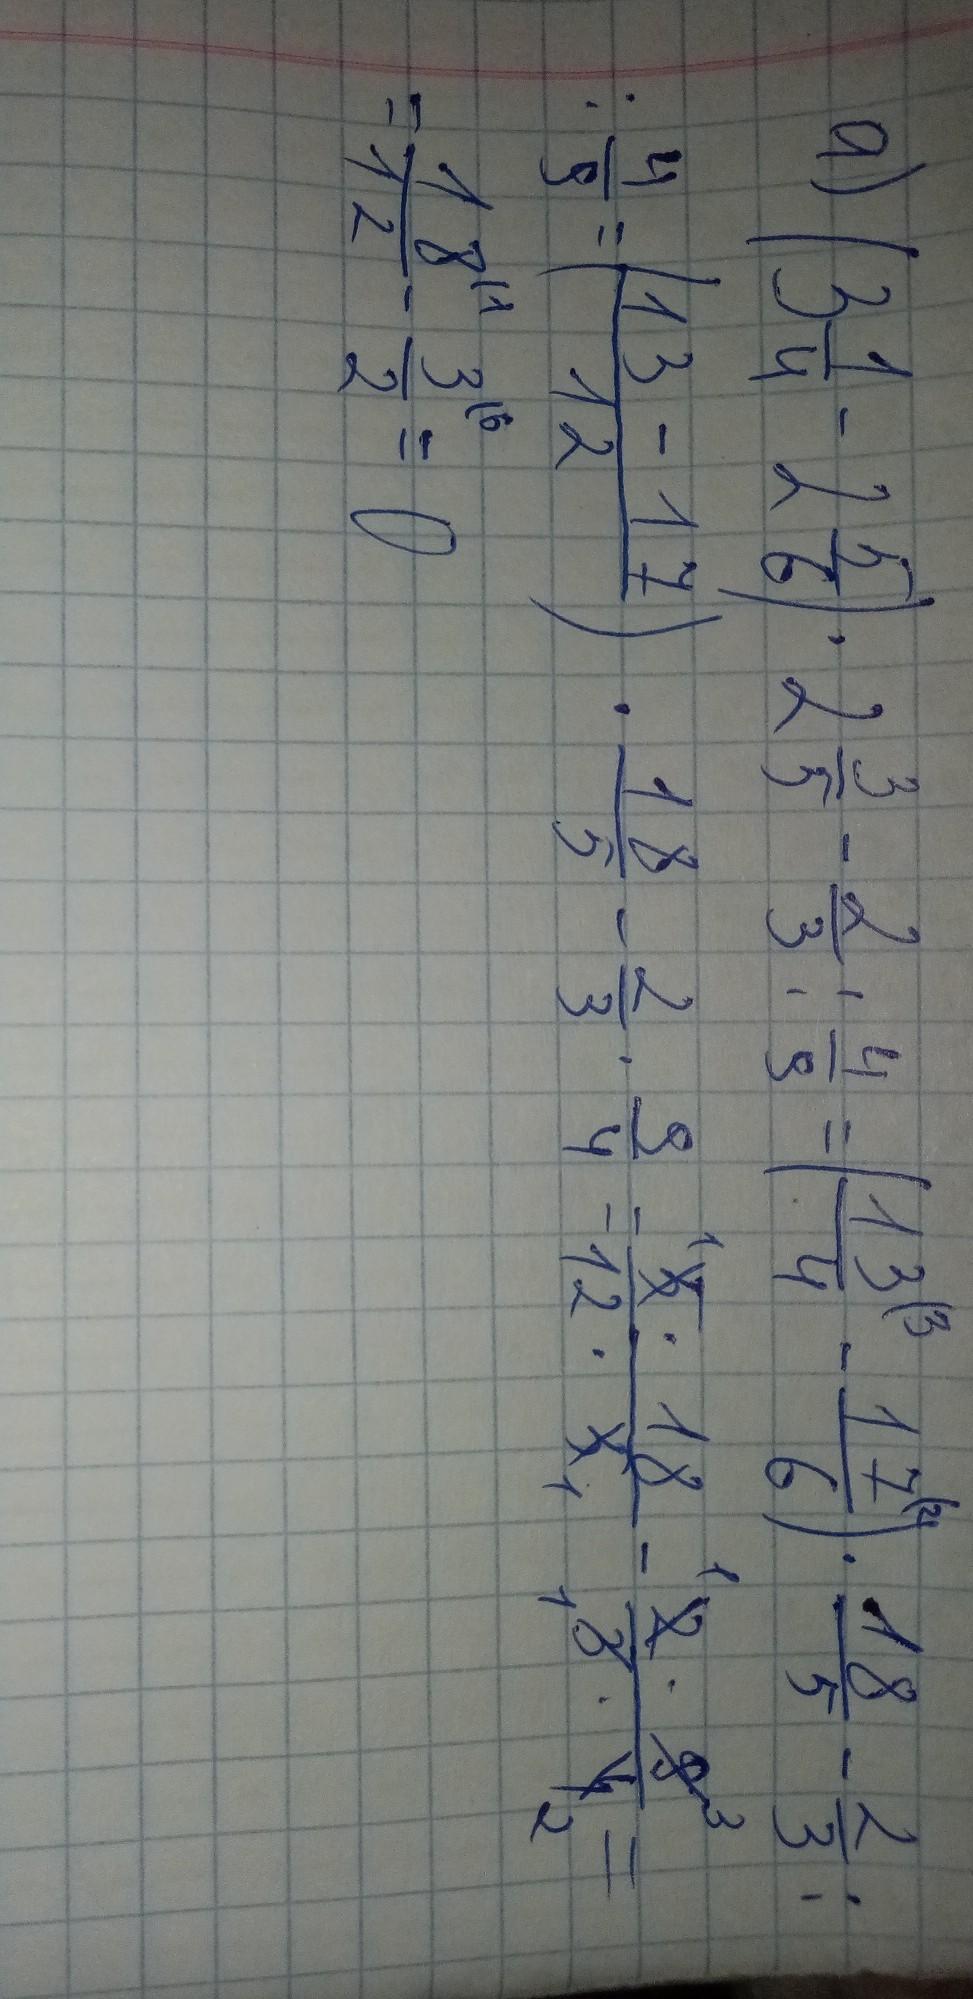 а) (3 1/4 - 2 5/6) · 2 3/5 - 2/3 : 4/9 = (13/4 (3 - 17/6 (2) · 18/5 - 2/3 :
: 4/9 = ((13 - 17)/12) · 18/5 - 2/3 · 9/4 = (5 1 · 18)/(12 · 5 1) - (2 1 · 9 3)/(3 1 · 4 2) =
= 18/12 (1 - 3/2 (6 = 0